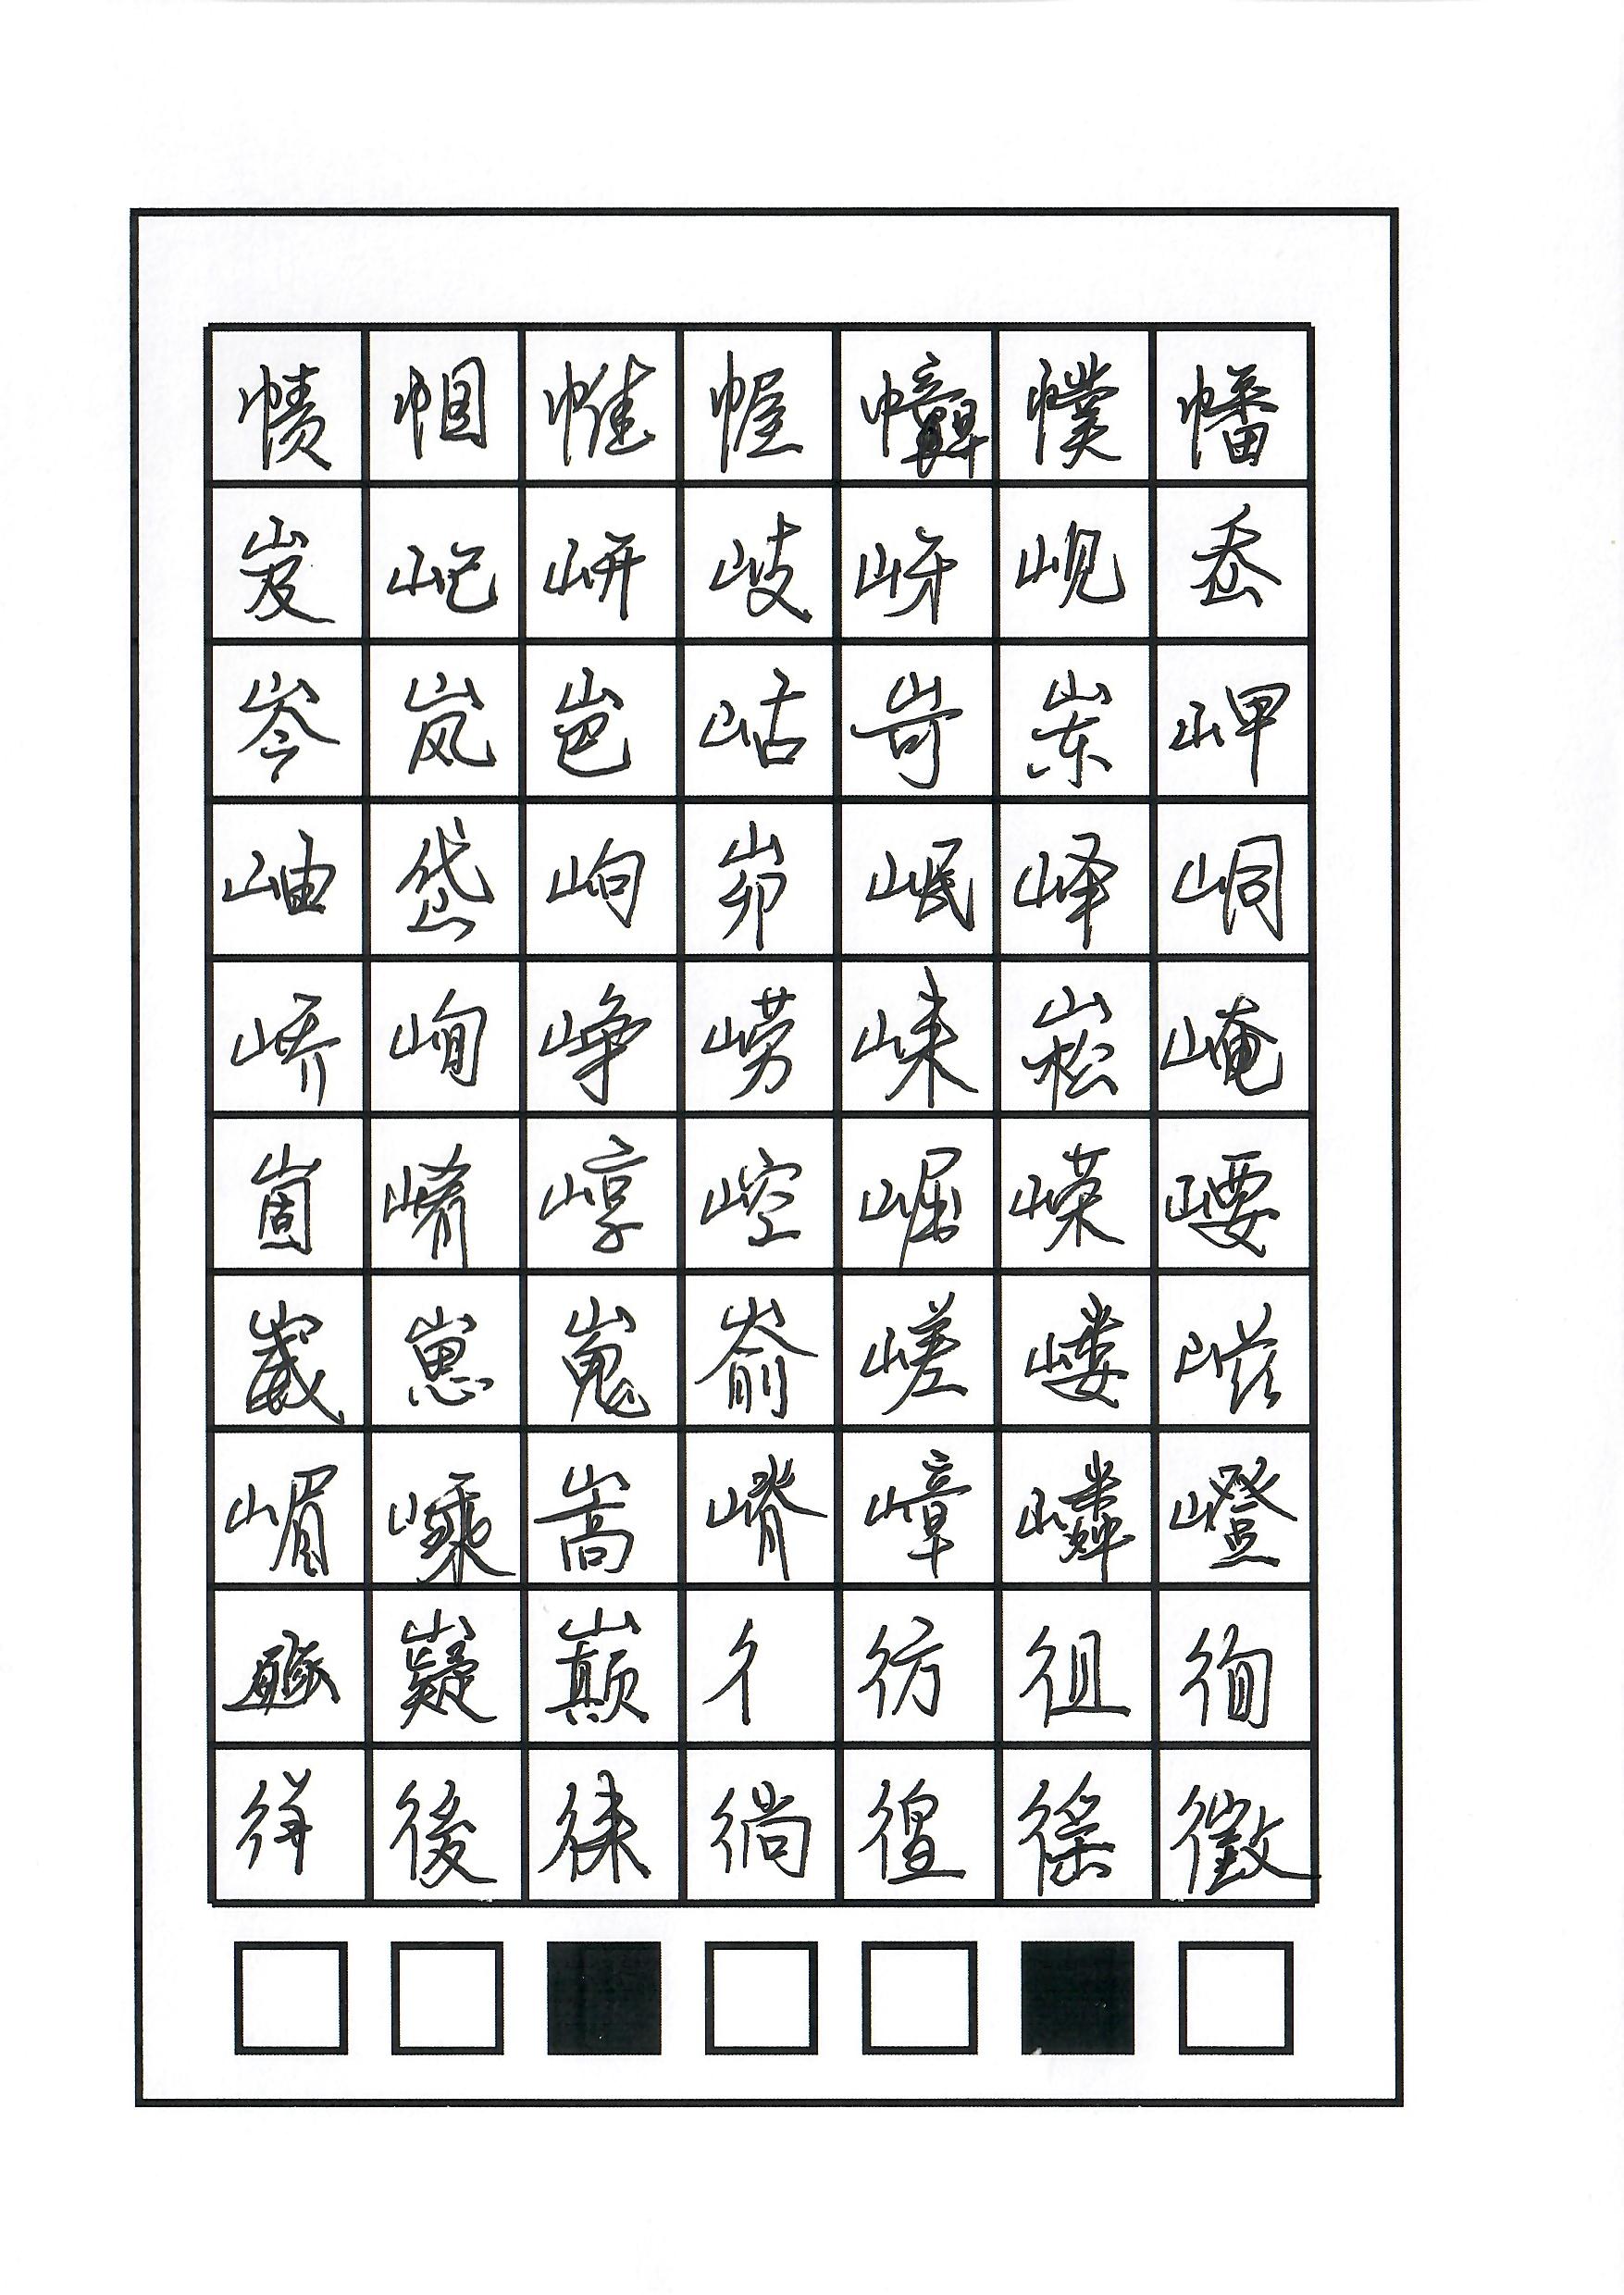 帻帼帷幄幞幡
岌屺岍岐岈岘岙
岑岚岜岵岢岽岬
岫岱岣峁岷峄峒
峤峋峥崂崃崧崦
崮崤崞崆崛嵘崾
崴崽嵬嵛嵯嵝嵫
嵋嵊嵩嵴嶂嶙嶝
豳嶷巅彳彷徂徇
後徕徜徨徭徵